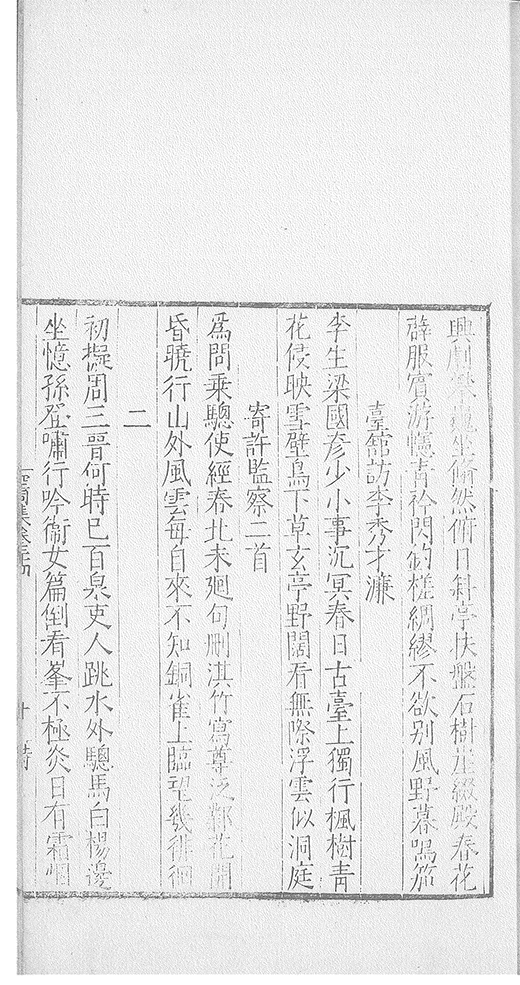 興劇坐翛然俯日斜亭扶盤石樹崖綴殿春花
薜服賓游憶青衿閃釣槎綢繆不欲别風野暮鳴笳
臺舘訪李秀才濂
李生梁國彦少小事沉冥春日古臺上獨行楓樹青
花侵映雪壁鳥下草玄亭野闊看無際浮雲似洞庭
寄許監察二首
爲問乗驄使經春北未廻句刪淇竹寫尊泛鄴花開
昏曉行山外風雲每自來不知銅雀上臨望幾徘徊
二
初擬周三晉何時巳百泉吏人跳水外驄馬白楊邊
坐憶孫登嘯行吟衞女篇倒看峯不極炎日有霜